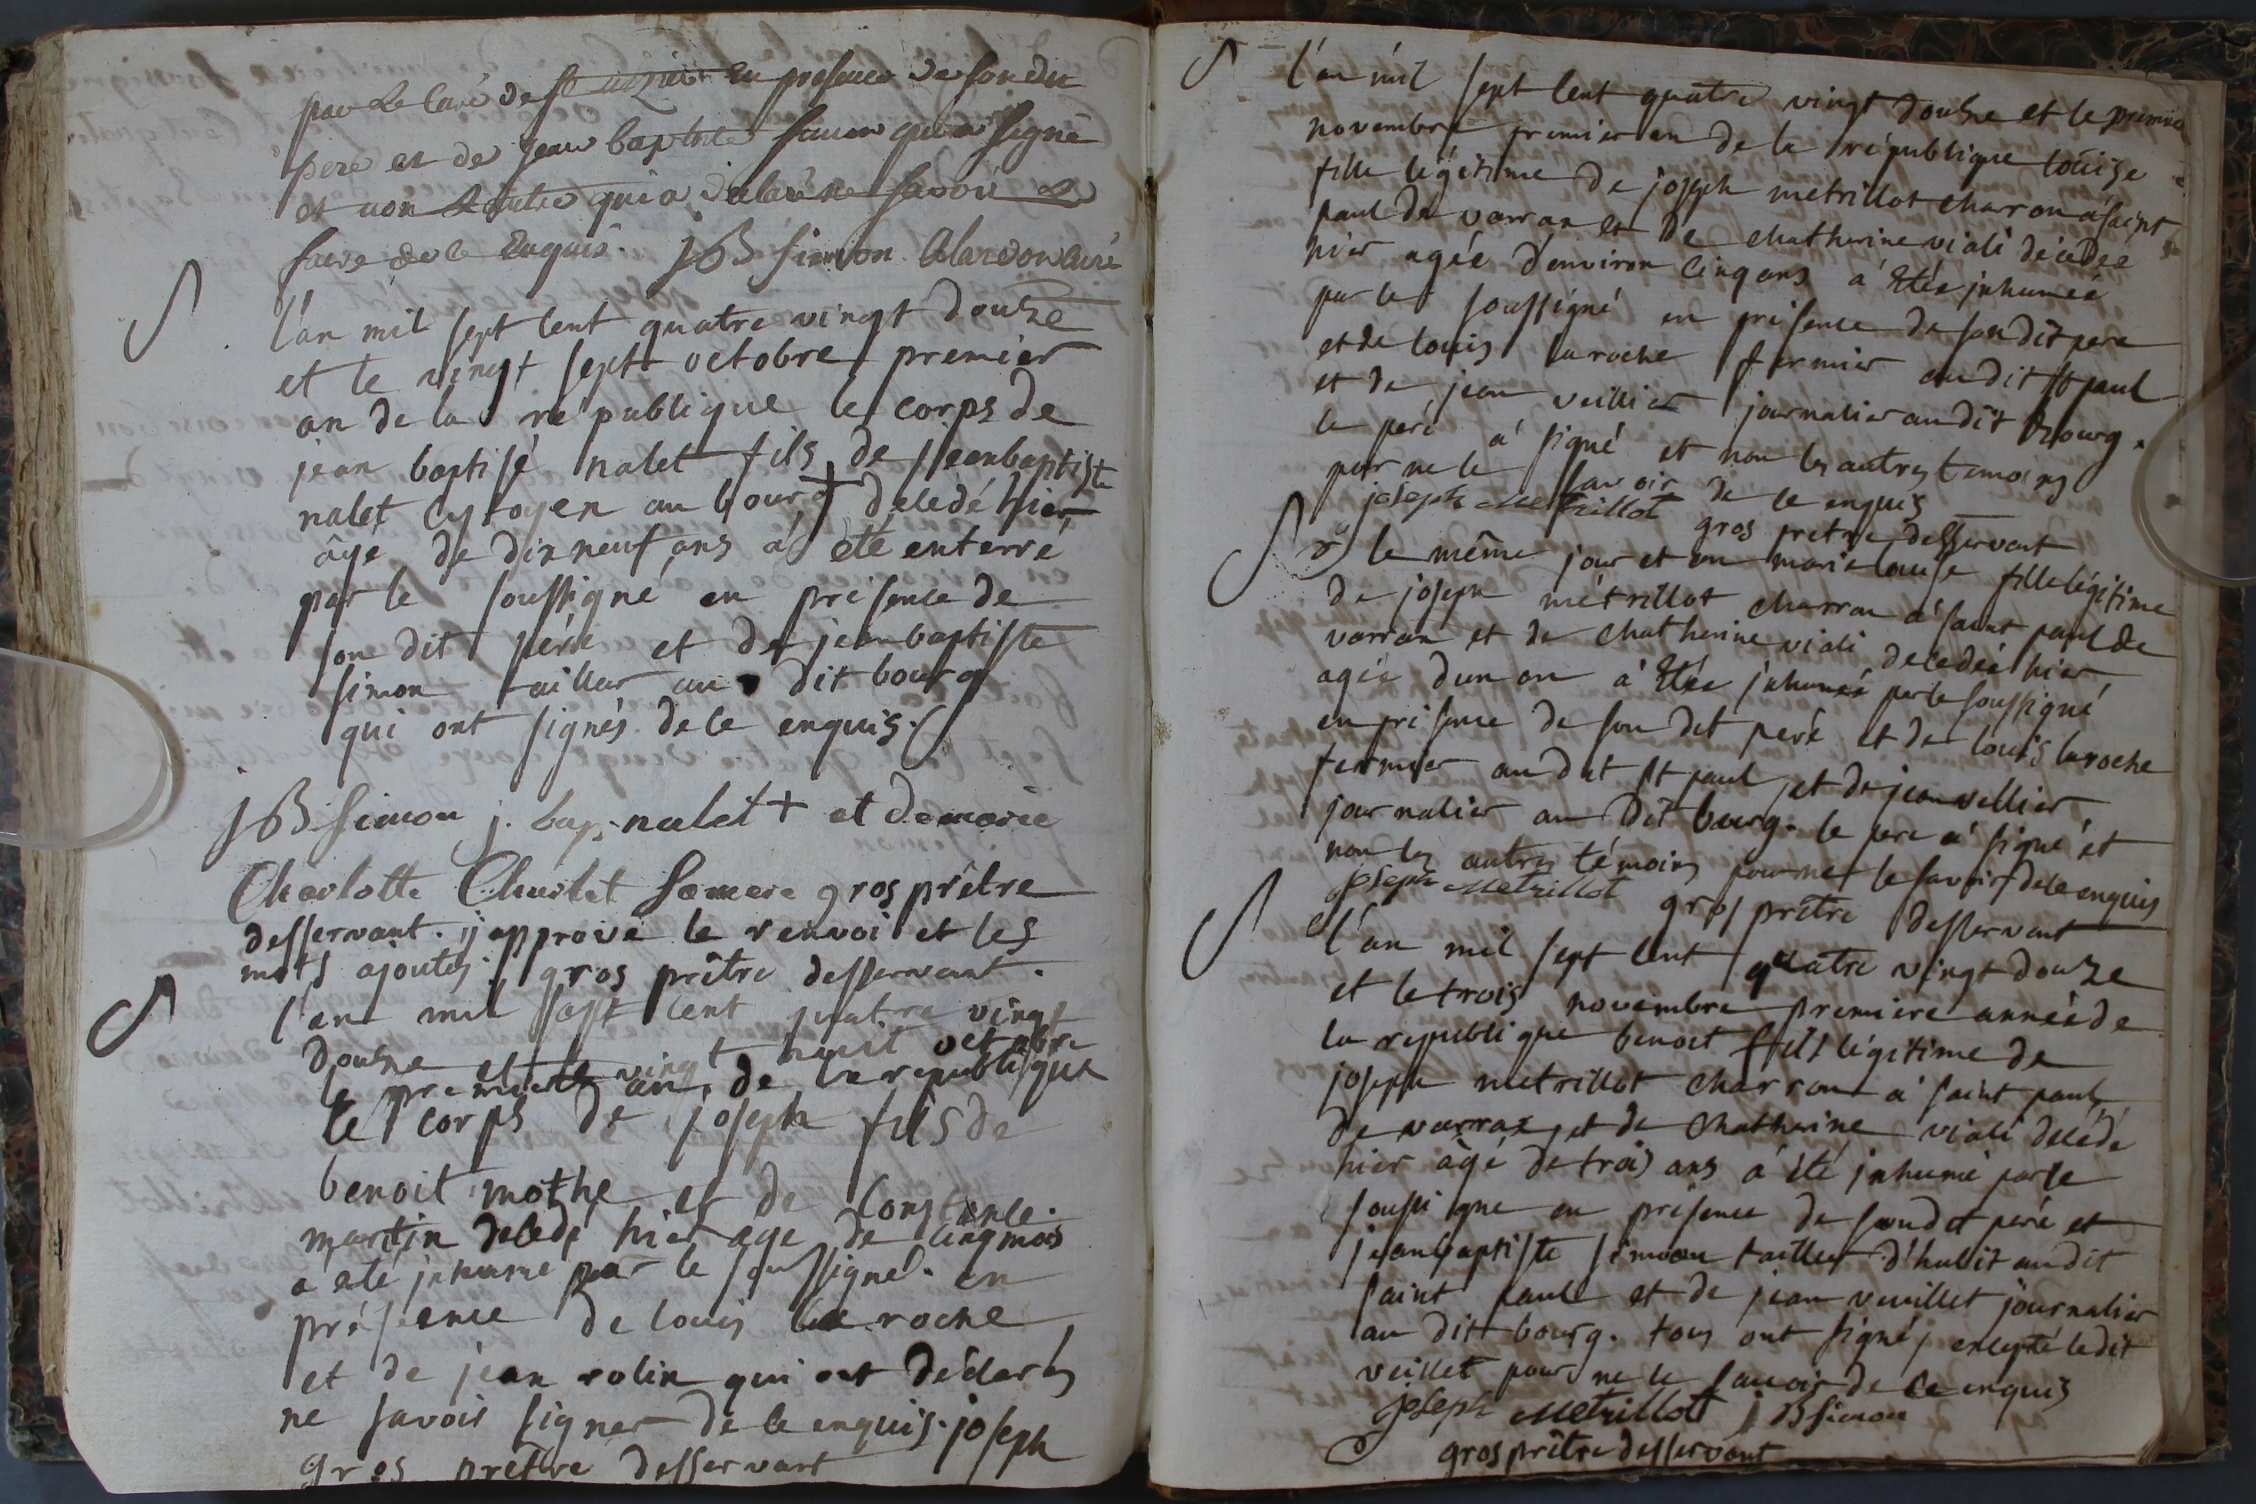 par Le Curé de St en presence de son dit
pere et de jean baptiste simon qui a signé
et non Lautre qui a déclaré ne savoir Le
faire de ce Enquis. JB Simon Curé
l'an mil sept cent quatre vingt douze
et le vingt sept octobre premier
an de la république le corps de
jean baptisé nalet fils de jeanbaptiste
nalet cytoyen au bourg + decedé hier
âgé de dix neuf ans a été enterré
par le soussigné en présence de
son dit pére et de jeanbaptiste
simon tailleur au dit bourg
qui ont signés de ce enquis.
JB Simon j. bap. nalet + et de marie
Charlotte Charlet Sa mere gros prêtre
desservant. j'approuve le renvoi et les
mots ajoutés. gros prêtre desservant.
l'an mil sept cent quatre vingt
douze et le vingt huit octobre
le premier an de la republique
le corps de joseph fils de
benoit mothe et de Constance
martin decedé hier age de cinq mois
a été inhumé par le soussigné. en
présence de louis la roche
et de jean rolin qui ont déclarés
ne savoir signer de ce enquis. joseph
gros prêtre desservant
l'an mil sept cent quatre vingt douze et le premier
novembre premier an de la république louise
fille légitime de joseph metrillot charon a saint
paul de varrax et de chatherine viali décédée
hier agée d'environ cinq ans a étée inhumée
par le soussigné en présence de son dit pere
et de louis laroche fermier au dit st paul
et de jean veillier journalier au dit bourg.
le peré a signé et non les autres temoins
pour ne le savoir de ce enquis
joseph Metrillot gros pretre desservant
le même jour et an marie louise fille légitime
de joseph métrillot charron a saint paul de
varrax et de chatherine viali decedée hier
agée d'un an a étée inhumée par le soussigné
en présence de son dit peré et de louis laroche
fermier au dit st paul et de jean vellier
journalier au dit bourg. le pere a signé et
non les autres témoins pour ne le savoir de ce enquis
joseph Metrillot gros prêtre desservant
l'an mil sept cent quatre vingt douze
et le trois novembre premiere année de
la republique benoit fils légitime de
joseph metrillot charron a saint paul
de varrax et de chatherine viali decédé
hier âgé de trois ans a été inhumé par le
soussigné en présence de son dit peré et
jeanbaptiste simon tailleur d'habit au dit
saint paul et de jean veuillet journalier
au dit bourg. tous ont signé, excepté le dit
veillet pour ne le savoir de ce enquis
joseph Metrillot JB Simon
gros prêtre desservant